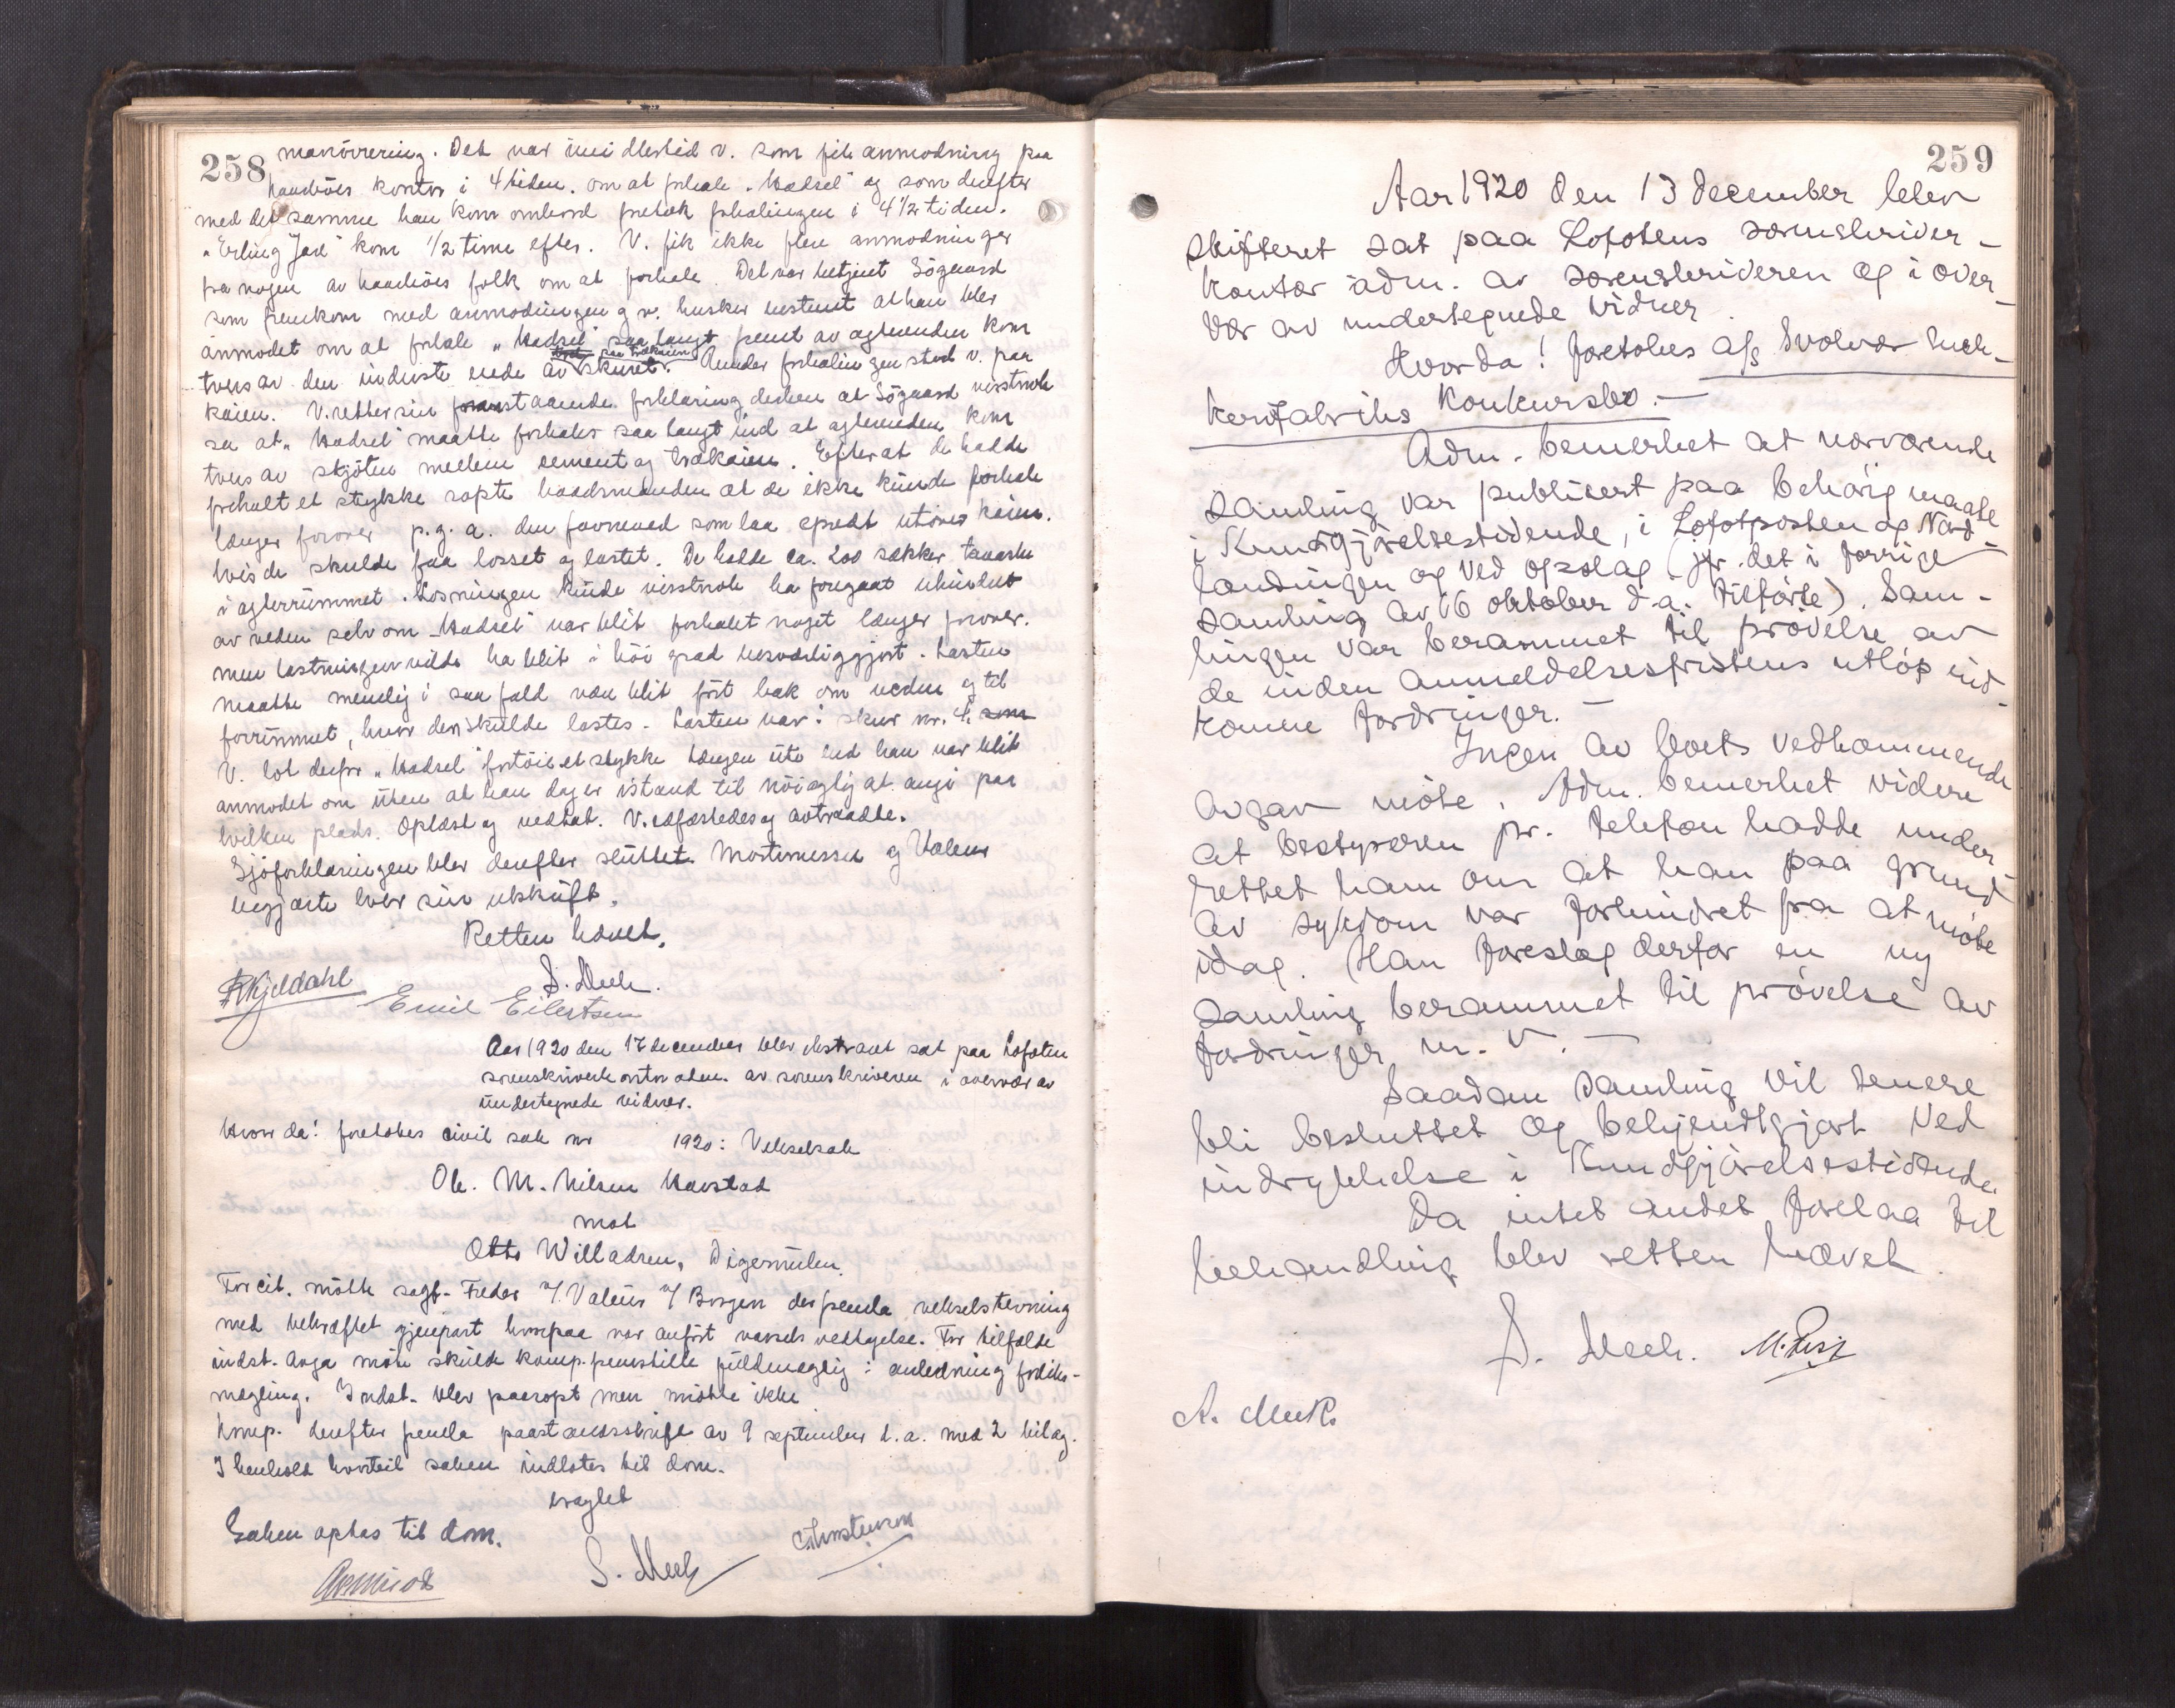 258
manövrering. Det var imidlertid v. som fik anmodning paa
kontor i 4 tiden. om at forhale "Hadsel" og som derefter
med det samme han kom ombord foretok forhalingen i 4½ tiden.
"Erling Jarl" kom 1/2 time efter. V. fik ikke flere anmodninger
fra nogen av folk om at forhale. Det var betjent Sögaard
som fremkom med anmodningen og v. husker bestemt at han blev
anmodet om at forhale "Hadsel" saa langt frem at agterenden kom
tvers av den inderste ende av skuret. Under forhalingen stod v. paa
kaien. V. retter sin foranstaaende forklaring derhen at Sögaard visstnok
sa at "Hadsel" maatte forhales saa langt ind at agterenden kom
tvers av skjöten mellem cement og trækaien. Efterat de hadde
forhalt et stykke ropte baadsmanden at de ikke kunde forhale
længer forover p.g.a. den favneved som laa spredt utover kaien.
hvis de skulde faa losset og lastet. De hadde ca. 200 sækker
i agterrummet. Losningen kunde visstnok ha foregaat uhindret
av veden selv om "Hadsel" var blit forhalet noget længer forover.
men lastningen vilde ha blit i höi grad besværliggjort. Lasten
maatte nemlig i saa fald være blit fört bak om veden og til
forrummet, hvor den skulde lastes. Lasten var i skur nr. 4.
V. lot derfor "Hadsel" fortöie et stykke længer ute end han var blit
anmodet om uten at han dog er istand til nöiagtig at angi paa
hvilken plads. Oplæst og vedtat. V. edfæstedes og avtraadte.
Sjöforklaringen blev derefter sluttet. Mortensen og Valeur
begjærte hver sin utskrift.
Retten hævet.
S. Mech.
Kjeldahl
Emil Eilertsen
Aar 1920 den 17 december blev ekstraret sat paa Lofoten
sorenskriverkontor adm. av sorenskriveren i overvær av
undertegnede vidner.
Hvor da! foretokes civil sak nr 1920: Vekselsak
Ole. M. Nilsen Kavstad
mot
Otto Willadsen, Digermulen.
For cit. mötte sagf. Freder f/ Valeur f/ Borgen der femla vekselstevning
med bekræftet gjenpart hvorpaa var anfört varsels vedtagelse. For tilfælde
indst. avga möte skulde komp. fremstille fuldmægtig i anledning forliks-
mægling. Indst. blev paaropt men mötte ikke.
Komp. derefter femla paastandsskrift av 9 september d.a. med 2 bilag.
I henhold hvortil saken indlotes til dom.
Saken optas til dom.
S. Mech
259
Aar 1920 den 13 december blev
skifteret sat paa Lofotens sorenskriver-
kontor adm. av sorenskriveren og i over-
vær av undertegnede vidner.
Hvor da! foretokes A/S Svolvær Suk-
kertøfabriks Konkursbo.-
Adm. bemerket at nærværende
samling var publisert paa behörig maate
i Kundgjörelsestidende, i Lofotposten og Nord-
landingen og ved opslag (jfr. det i forrige
samling av 16 oktober d.a. tilförte). Sam-
lingen var berammet til prövelse av
de inden anmeldelsesfristens utlöp ind-
komne fordringer. -
Ingen av boets vedkommende
avgav möte. Adm. bemerket videre
at bestyreren pr. telefon hadde under-
rettet ham om at han paa grund
av sykdom var forhindret fra at möte
idag. Han foreslog derfor en ny
samling berammet til prövelse av
fordringer m. v. -
Saadan samling vil senere
bli besluttet og bekjendtgjort ved
indrykkelse i Kundgjörelsestidende.
Da intet andet forelaa til
behandling blev retten hævet.
S. Mech.